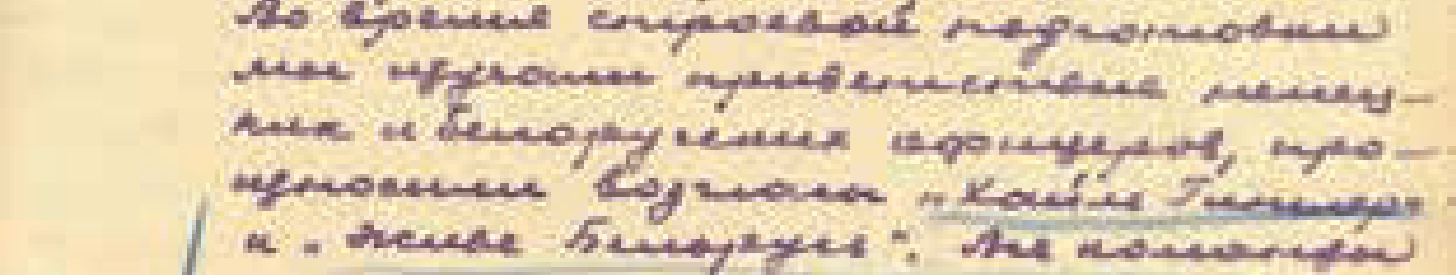 Во время строевой подготовки
мы изучали приветствие немец-
ких и белоруских офицеров, про-
износили возгласы „Хайль Гитлер"
и „Живе Беларусь". Все команды